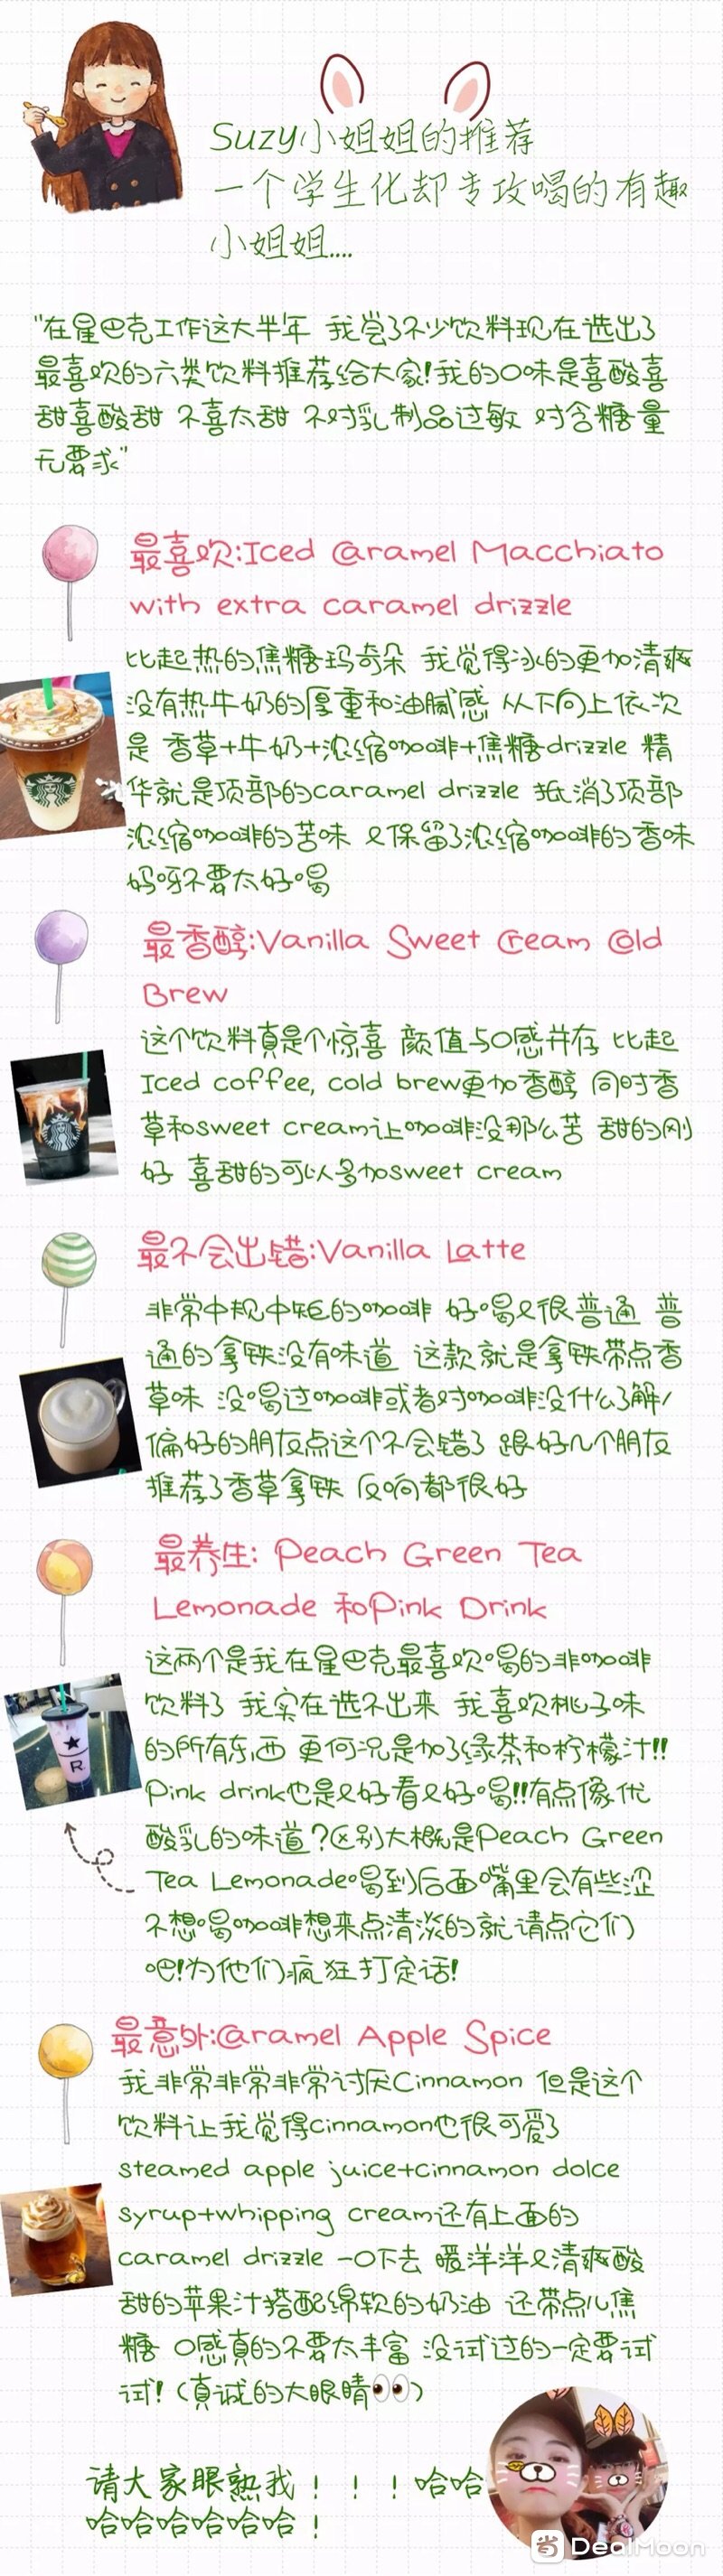 Suzy小姐姐的推荐
一个学生化却专攻喝的有趣
小姐姐....
"在星巴克工作这大半年 我尝了不少饮料现在选出了
最喜欢的六类饮料推荐给大家!我的口味是喜酸喜
甜喜酸甜 不喜太甜 不对乳制品过敏 对含糖量
无要求"
最喜欢:Iced Caramel Macchiato
with extra caramel drizzle
比起热的焦糖玛奇朵 我觉得冰的更加清爽
没有热牛奶的厚重和油腻感 从下向上依次
是 香草+牛奶+浓缩咖啡+焦糖drizzle 精
华就是顶部的caramel drizzle 抵消了顶部
浓缩咖啡的苦味 又保留了浓缩咖啡的香味
妈呀不要太好喝
最香醇:Vanilla Sweet Cream Cold
Brew
这个饮料真是个惊喜 颜值与口感并存 比起
Iced coffee, cold brew更加香醇 同时香
草和sweet cream让咖啡没那么苦 甜的刚
好 喜甜的可以多加sweet cream
最不会出错:Vanilla Latte
非常中规中矩的咖啡 好喝又很普通 普
通的拿铁没有味道 这款就是拿铁带点香
草味 没喝过咖啡或者对咖啡没什么了解/
偏好的朋友点这个不会错了 跟好几个朋友
推荐了香草拿铁 反响都很好
最养生: Peach Green Tea
Lemonade 和Pink Drink
这两个是我在星巴克最喜欢喝的非咖啡
饮料了 我实在选不出来 我喜欢桃子味
的所有东西 更何况是加了绿茶和柠檬汁!!
Pink drink也是又好看又好喝!!有点像优
酸乳的味道?区别大概是Peach Green
Tea Lemonade喝到后面嘴里会有些涩
不想喝咖啡想来点清淡的就请点它们
吧!为他们疯狂打定话!
R
最意外:Caramel Apple Spice
我非常非常非常讨厌Cinnamon 但是这个
饮料让我觉得cinnamon也很可爱了
steamed apple juice+cinnamon dolce
syrup+whipping cream还有上面的
caramel drizzle 一口下去 暖洋洋又清爽酸
甜的苹果汁搭配绵软的奶油 还带点儿焦
糖 口感真的不要太丰富 没试过的一定要试
试!(真诚的大眼睛👀)
请大家眼熟我！！！哈哈
哈哈哈哈哈哈！
省 DealMoon